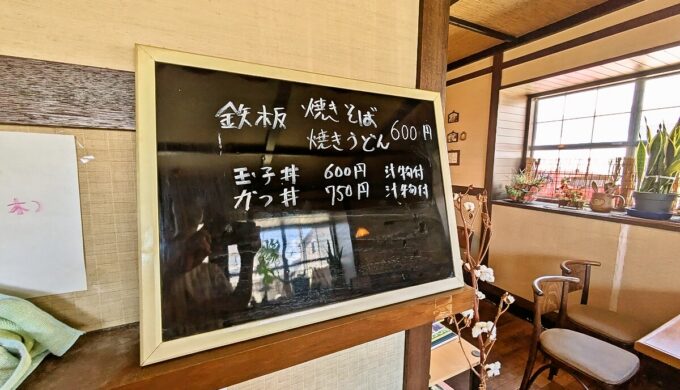 鉄板 焼きそば
焼きうどん 600円
玉子丼 600円 汁物付
かつ丼 750円 汁物付